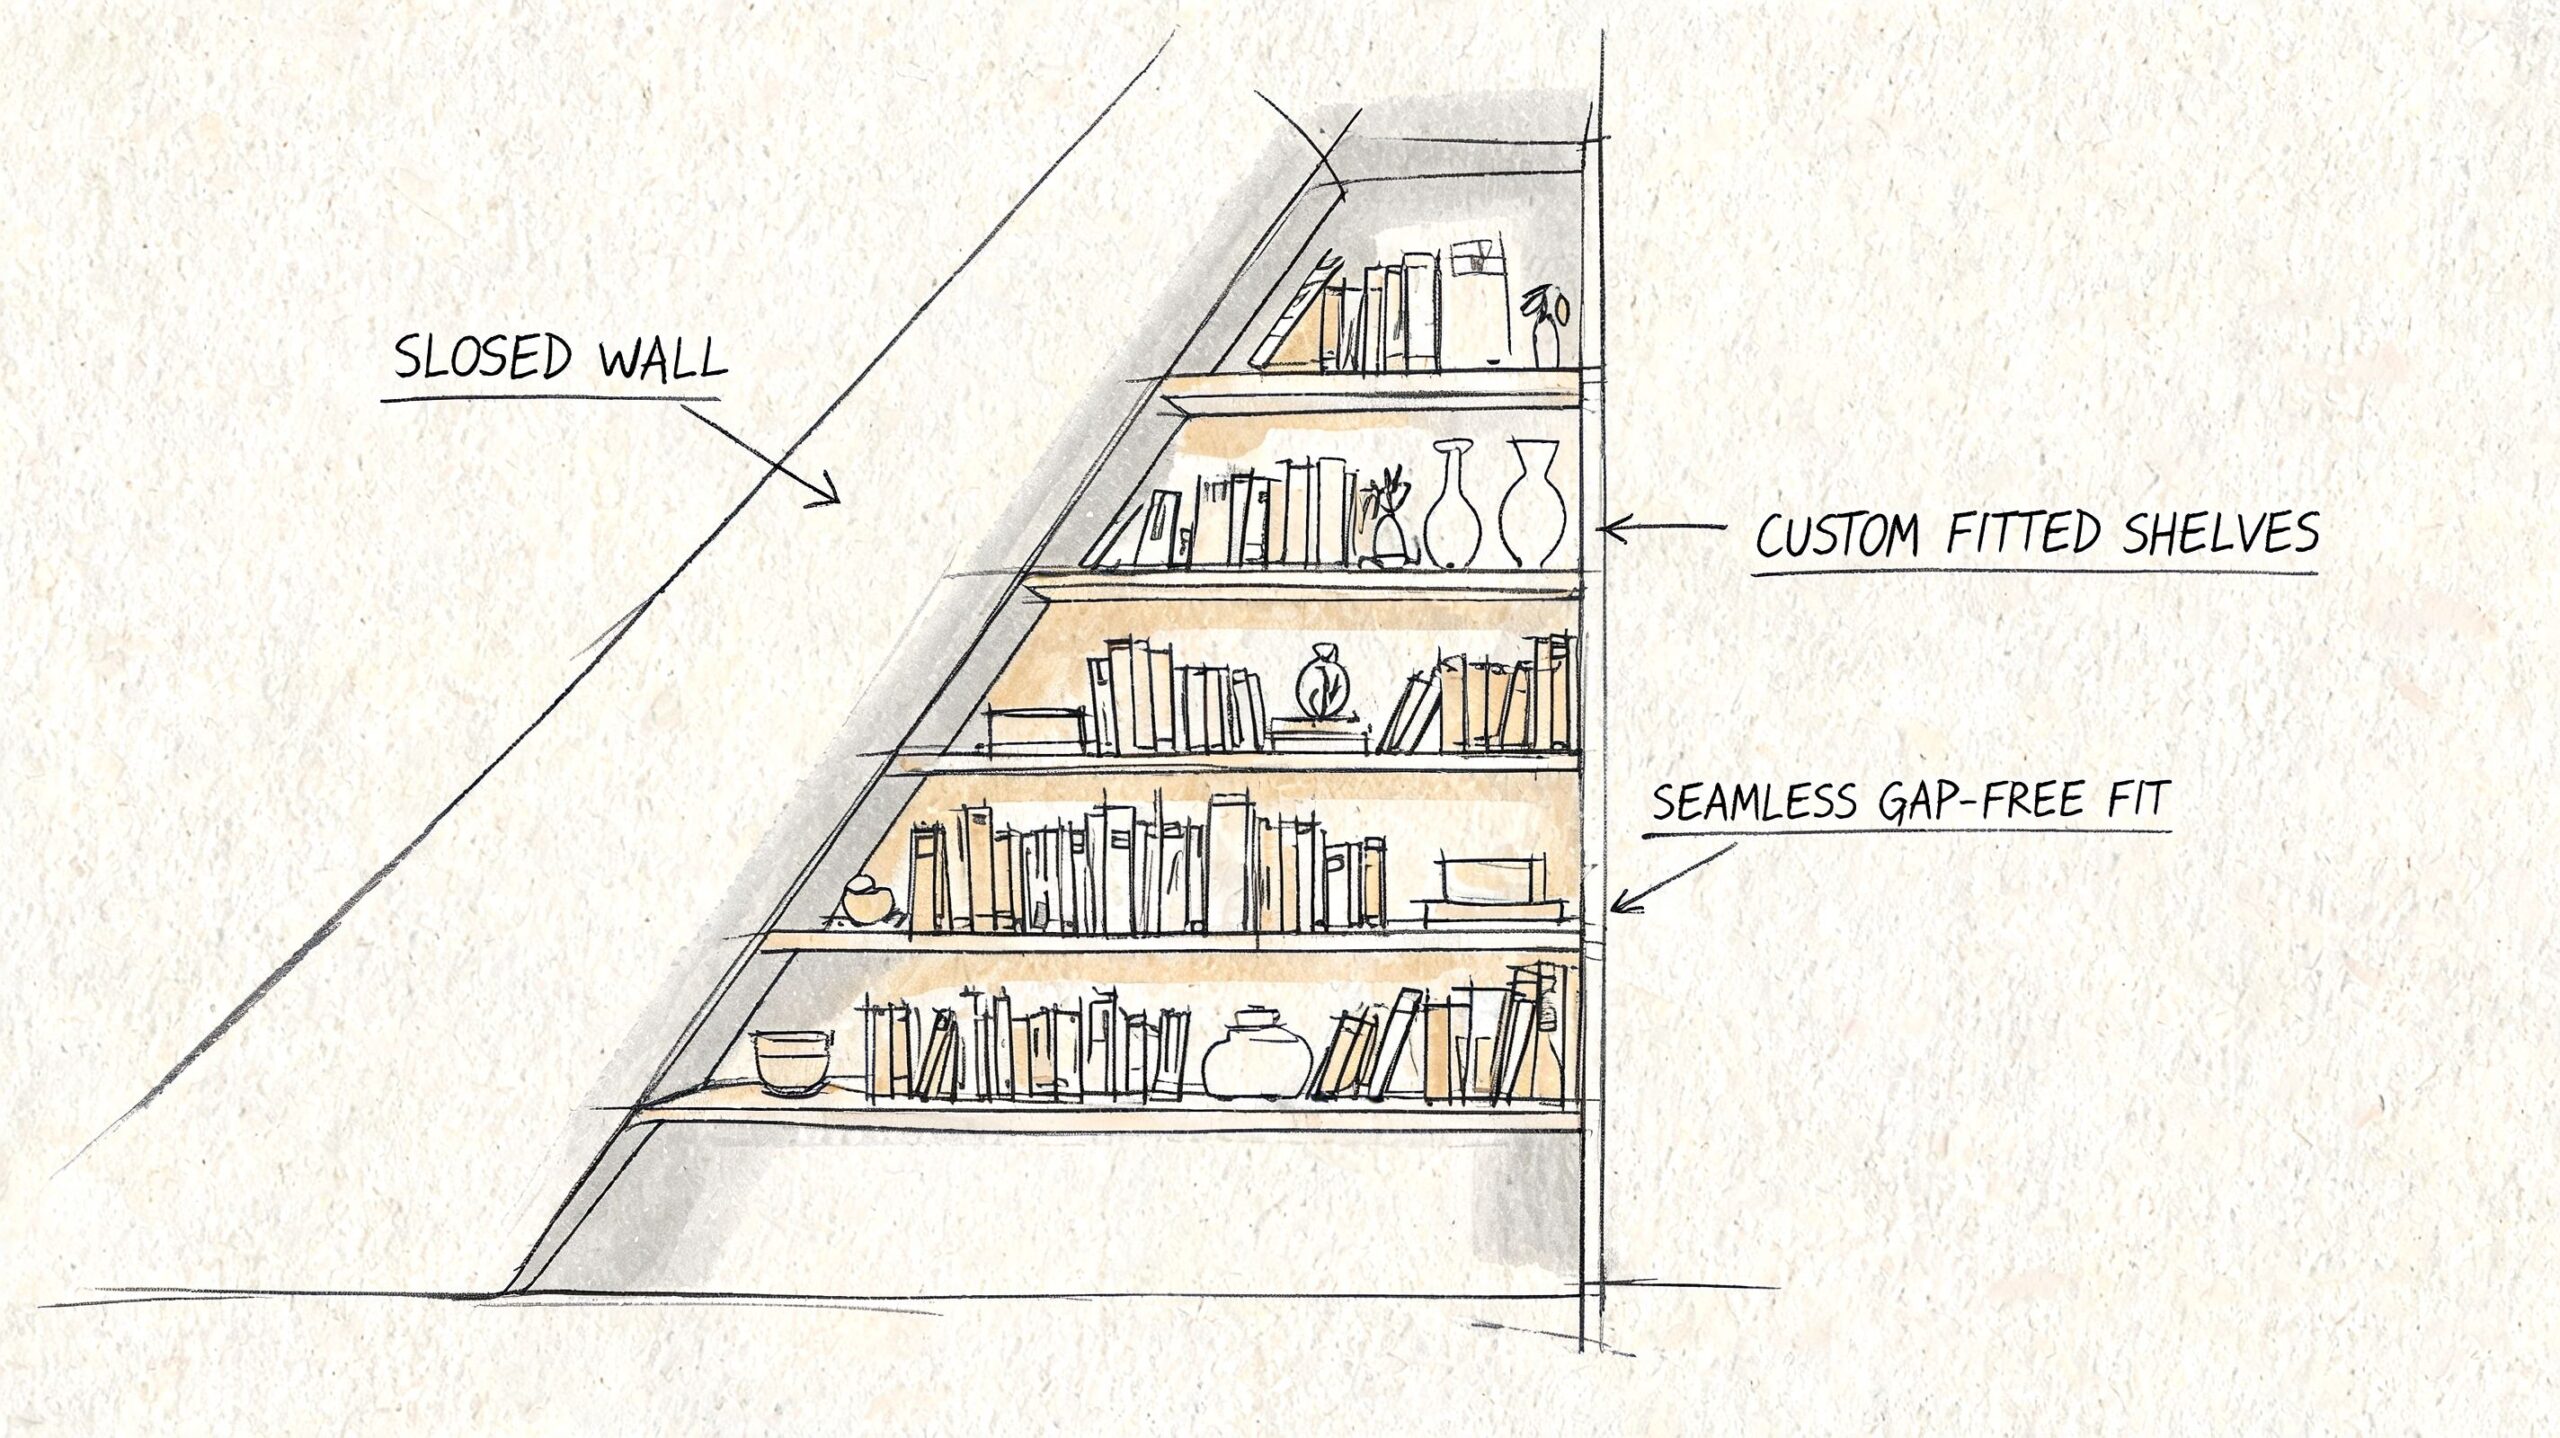 SLOSED WALL
CUSTOM FITTED SHELVES
SEAMLESS GAP-FREE FIT